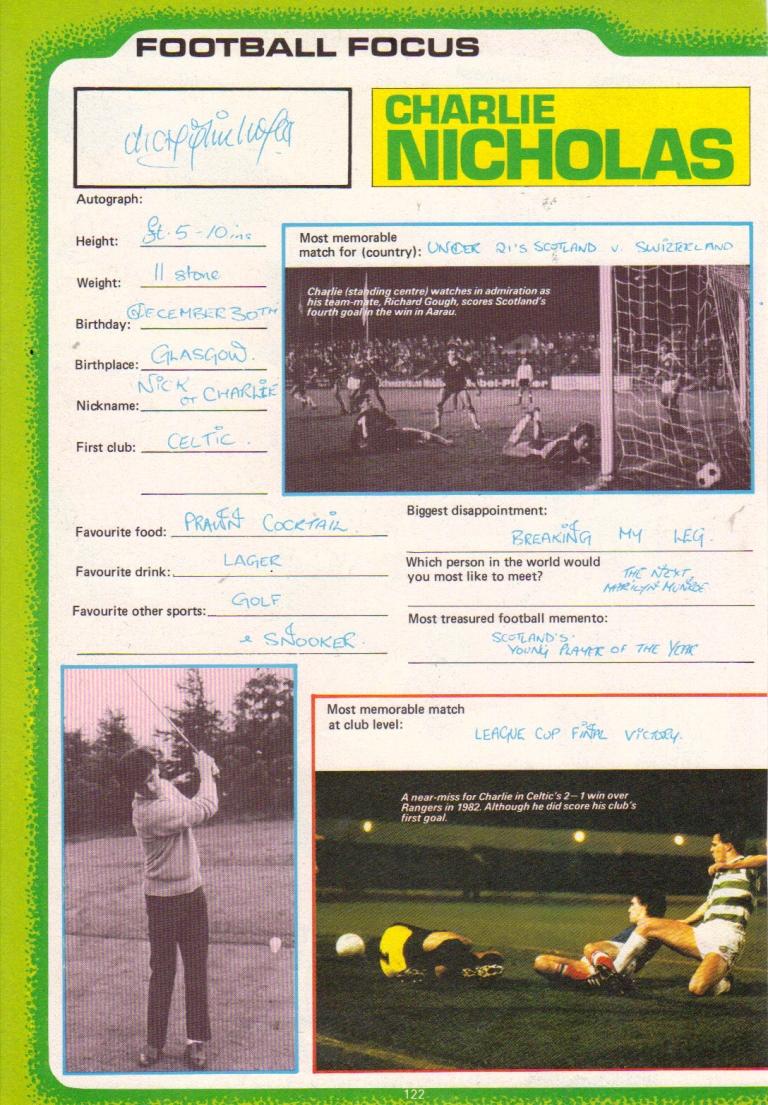 FOOTBALL FOCUS
CHARLIE
NICHOLAS
Autograph:
Height: ft. 5-10 ins
Weight: 11 stone
Birthday: DECEMBER 30TH
Birthplace: GLASGOW.
Nickname: NICK
or CHARLIE
First club: CELTIC.
Most memorable
match for (country): UNDER 21's SCOTLAND v. SWIZTERLAND
Charlie (standing centre) watches in admiration as
his team-mate, Richard Gough, scores Scotland's
fourth goal in the win in Aarau.
Favourite food: PRAWN COCKTAIL
Favourite drink: LAGER
Favourite other sports: GOLF
& SNOOKER.
Biggest disappointment:
BREAKING MY LEG.
Which person in the world would
you most like to meet? THE NEXT
MARILYN MUNROE
Most treasured football memento:
SCOTLAND'S
YOUNG PLAYER OF THE YEAR
Most memorable match
at club level:
LEAGUE CUP FINAL VICTORY.
A near-miss for Charlie in Celtic's 2–1 win over
Rangers in 1982. Although he did score his club's
first goal.
122